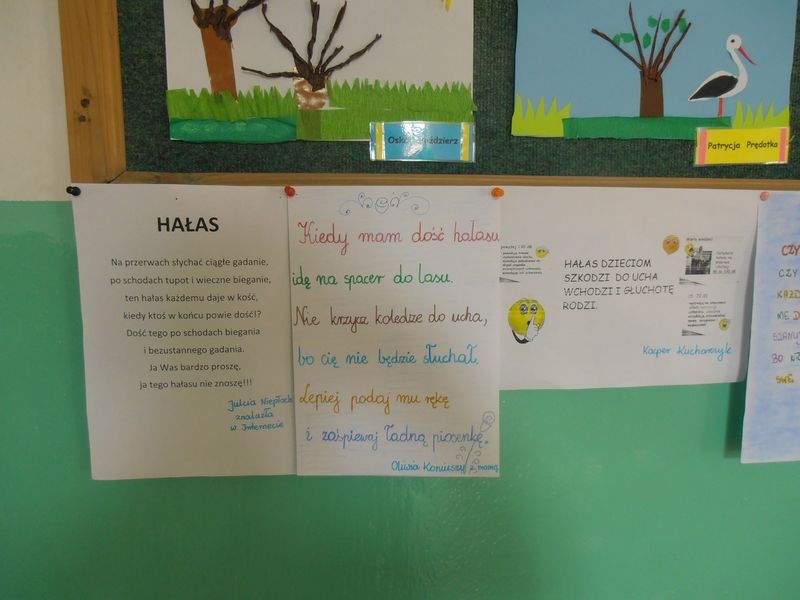 Patrycja Prędotka
HAŁAS
Na przerwach słychać ciągłe gadanie,
po schodach tupot i wieczne bieganie,
ten hałas każdemu daje w kość,
kiedy ktoś w końcu powie dość!?
Dość tego po schodach biegania
i bezustannego gadania.
Ja Was bardzo proszę,
ja tego hałasu nie znoszę!!!
Julcia
znalazła
w Internecie
Kiedy mam dość hałasu
idę na spacer do lasu.
Nie krzycz koledze do ucha,
bo cię nie będzie słuchał.
Lepiej podaj mu rękę
i zaśpiewaj ładną piosenkę.
Oliwia Koniuszy z mamą
HAŁAS DZIECIOM
SZKODZI DO UCHA
WCHODZI I GŁUCHOTĘ
RODZI.
Kacper Kucharczyk
CZY